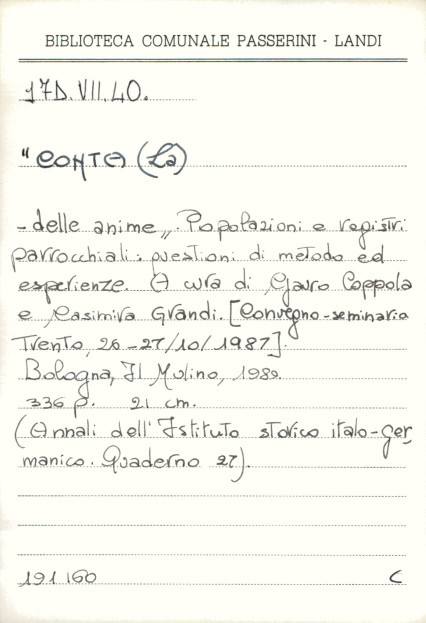 BIBLIOTECA COMUNALE PASSERINI - LANDI
17D.VII.40.
"CONTA (La)
- delle anime„. Popolazioni e registri
parrocchiali: questioni di metodo ed
esperienze. A cura di Gauro Coppola
e Casimira Grandi. [Convegno-seminario
Trento, 26-27/10/1987].
Bologna, Il Mulino, 1989.
336 p. 21 cm.
(Annali dell'Istituto storico italo-ger
manico. Quaderno 27).
191160 C